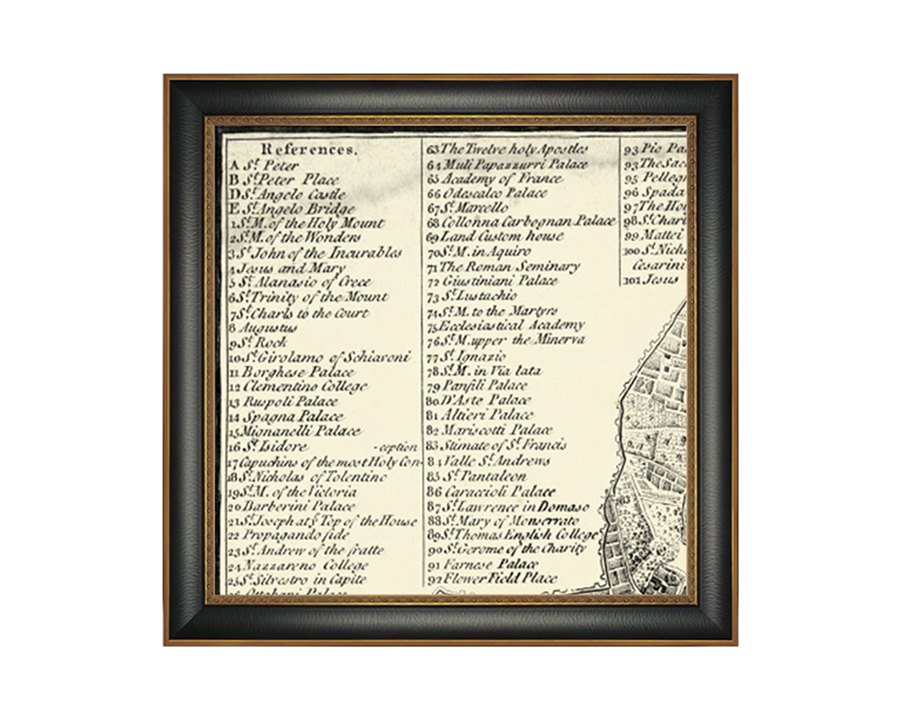 References.
A St. Peter
B St. Peter Place
D St. Angelo Castle
E St. Angelo Bridge
1 St. M. of the Holy Mount
2 St. M. of the Wonders
3 St. John of the Incurables
4 Jesus and Mary
5 St. Alanasio of Grece
6 St. Trinity of the Mount
7 St. Charls to the Court
8 Augustus
9 St. Rock
10 St. Girolamo of Schiavoni
11 Borghese Palace
12 Clementino College
13 Ruspoli Palace
14 Spagna Palace
15 Mignanelli Palace
16 St. Isidore -ception
17 Capuchins of the most Holy Con-
18 St. Nicholas of Tolentino
19 St. M. of the Victoria
20 Barberini Palace
21 St. Joseph at ye Top of the House
22 Propagando fide
23 St. Andrew of the fratte
24 Nazzareno College
25 St. Silvestro in Capite
63 The Twelve holy Apostles
64 Muli Papazzurri Palace
65 Academy of France
66 Odescalco Palace
67 St. Marcello
68 Collonna Carbognan Palace
69 Land Custom house
70 St. M. in Aquiro
71 The Roman Seminary
72 Giustiniani Palace
73 St. Eustachio
74 St. M. to the Martyrs
75 Ecclesiastical Academy
76 St. M. upper the Minerva
77 St. Ignazio
78 St. M. in Via lata
79 Panfili Palace
80 D'Aste Palace
81 Altieri Palace
82 Mariscotti Palace
83 Stimate of St. Francis
84 Valle St. Andrews
85 St. Pantaleon
86 Caraccioli Palace
87 St. Lawrence in Domaso
88 St. Mary of Monserrato
89 St. Thomas English College
90 St. Gerome of the Charity
91 Farnese Palace
92 Flower Field Place
93 Pio Pa
93 The Sac
95 Pelleg
96 Spada
97 The Ho
98 St. Chari
99 Mattei
100 St. Nich
Cesarini
101 Jesus
103